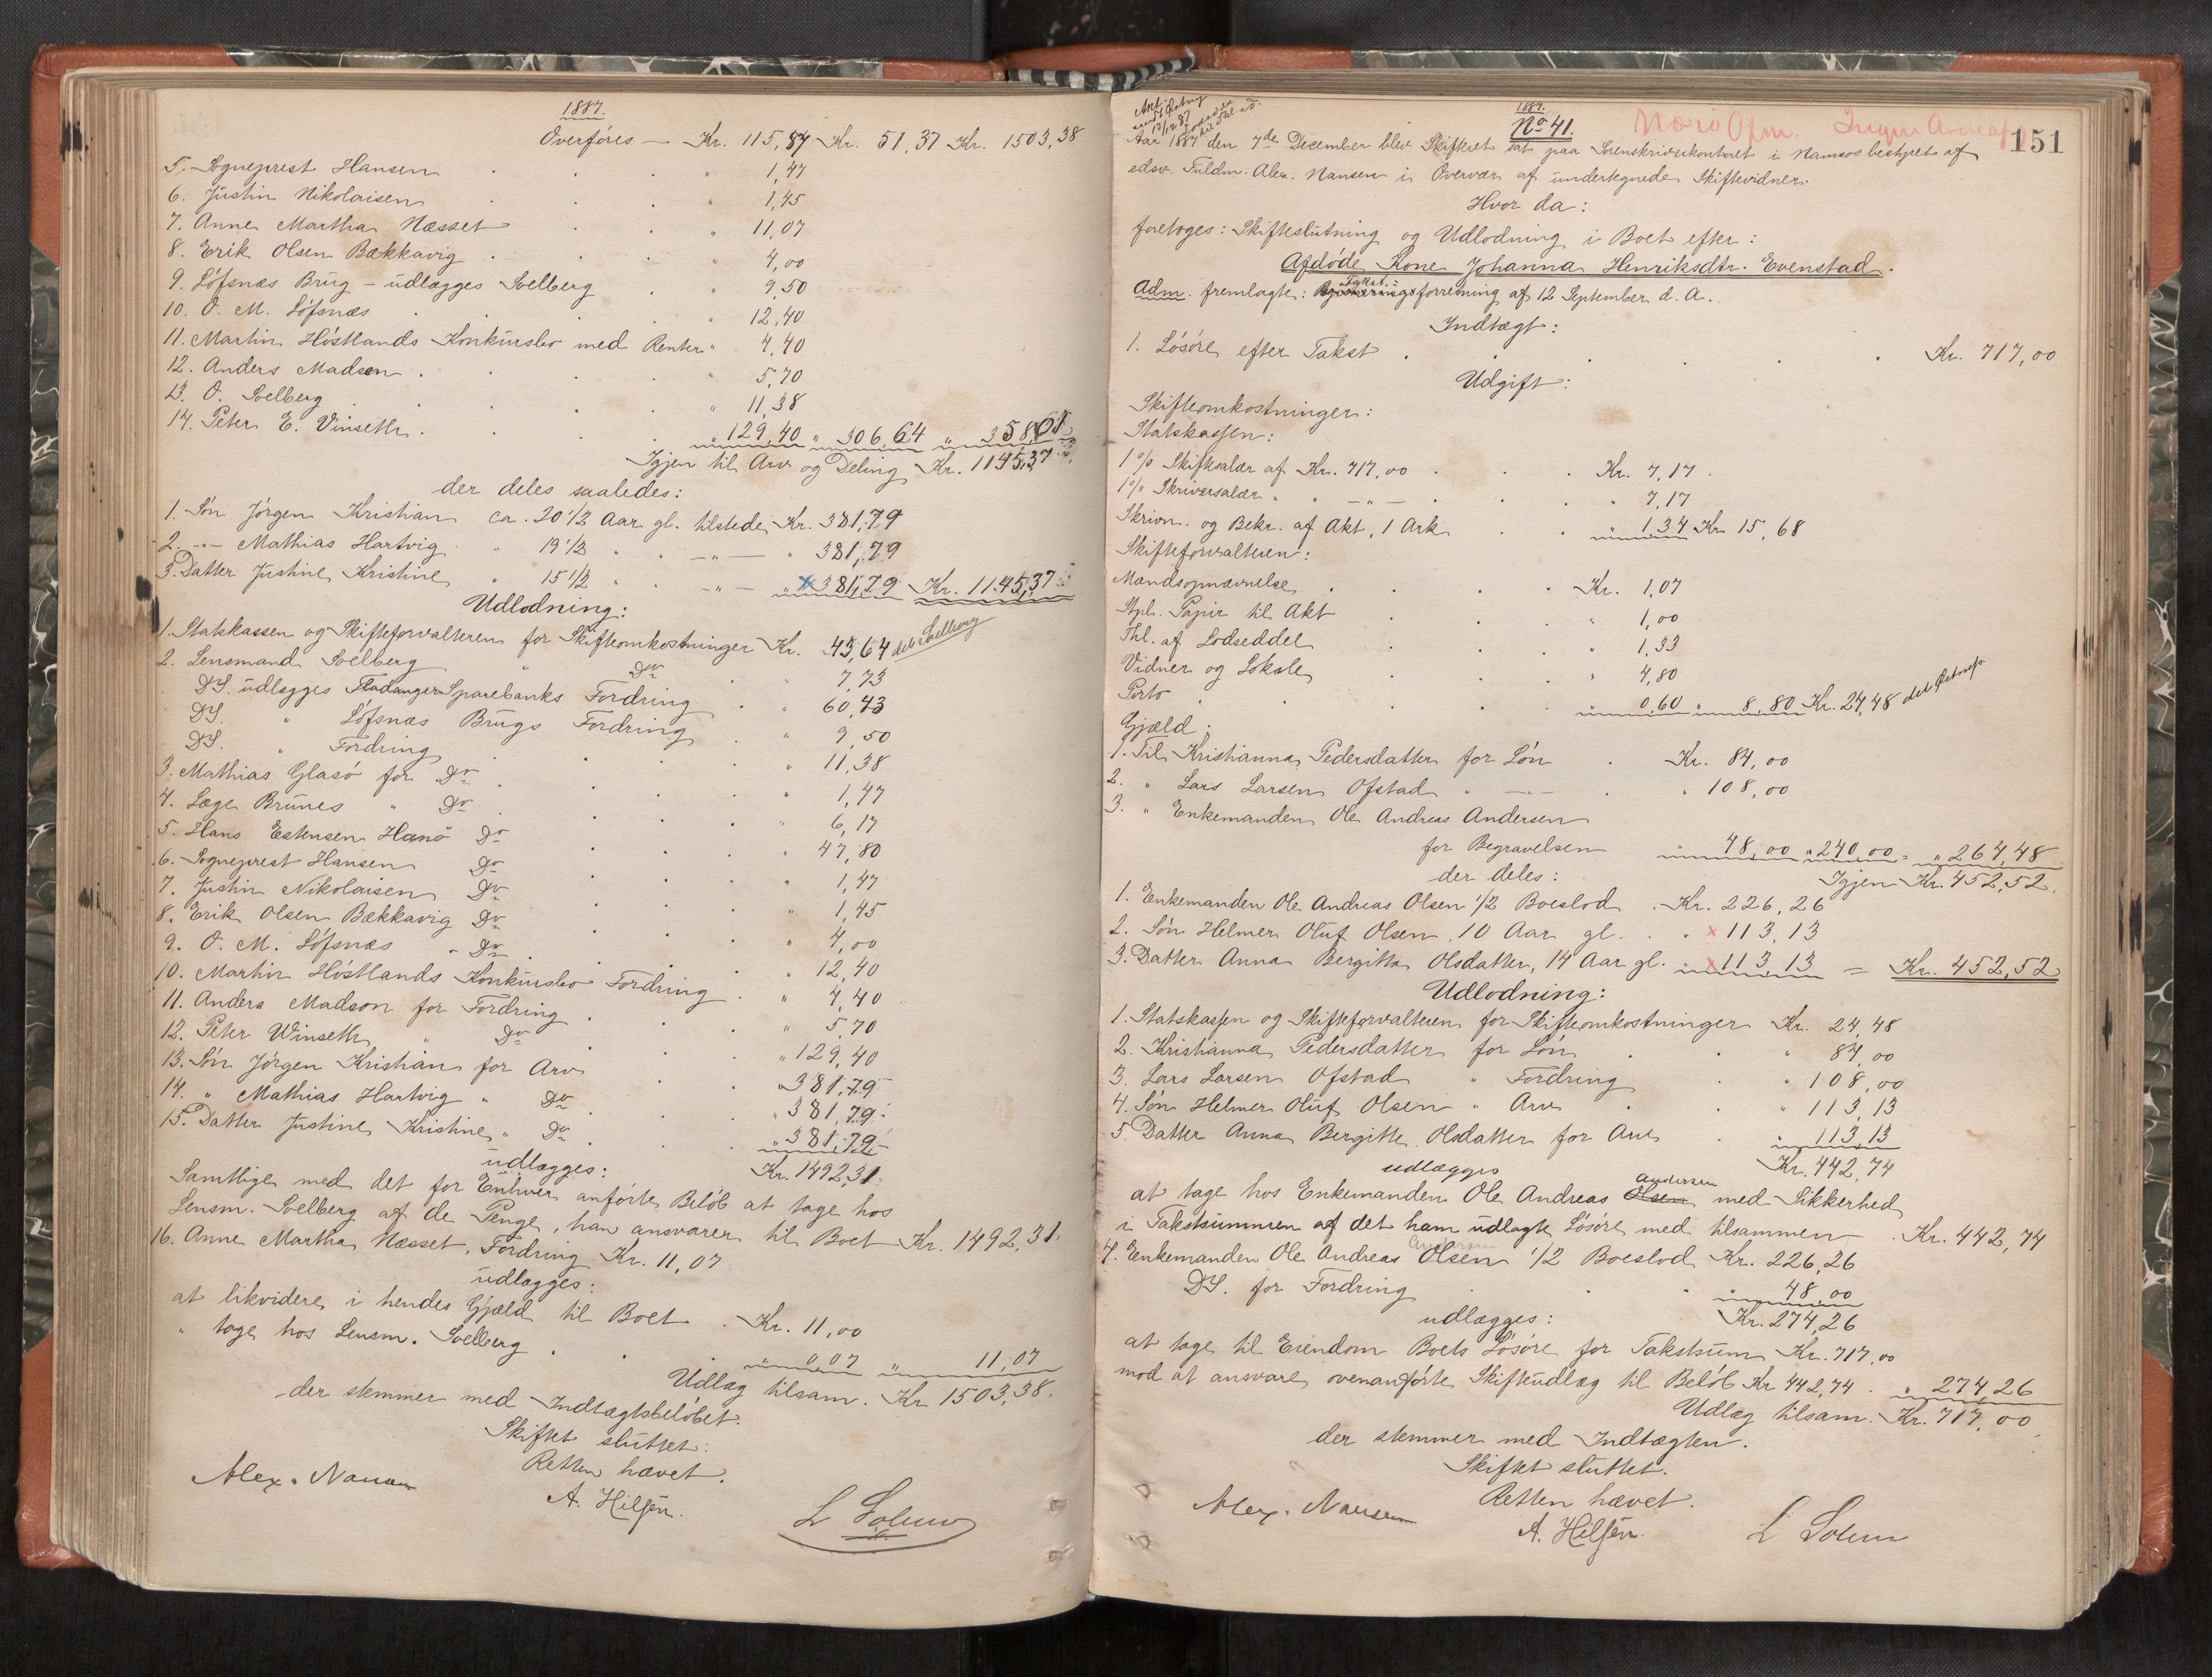 1887.
Overføres — Kr. 115,84 Kr. 51,37 Kr. 1503,38
5. Sogneprest Hansen . . . " 1,47
6. Justin Nikolaisen . . . " 1,45
7. Anne Martha Næsset . . " 11,07
8. Erik Olsen Bækkavig . . . " 4,00
9. Løfsnæs Brug - udlægges Solberg . " 9,50
10. O. M. Løfsnæs . . . " 12,40
11. Martin Høstlands Konkursbo med Renter " 4,40
12. Anders Madsen . . . " 5,70
13. O. Solberg . . . . " 11,38
14. Peter E. Vinseth . . . " 129,40 " 306,64 " 358,01
Igjen til Arv og Deling Kr. 1145,37
der deles saaledes:
1. Søn Jørgen Kristian ca. 20 1/2 Aar gl. tilstede Kr. 381,79
2. -"- Mathias Hartvig " 19 1/2 " " -"- " 381,79
3. Datter Justine Kristine " 15 1/2 " " -"- " x 381,79 Kr. 1145,37
Udlodning:
1. Statskassen og Skifteforvalteren for Skifteomkostninger Kr. 45,64
2. Lensmand Solberg " Do " 7,73
DS. udlægges Fladanger Sparebanks Fordring . " 60,43
DS. " Løfsnæs Brugs Fordring . " 9,50
DS. " Fordring . . . " 11,38
3. Mathias Glasø for Do . . . " 1,47
4. Læge Brunes " Do . . . " 6,17
5. Hans Estensen Hanø Do . . . " 47,80
6. Sogneprest Hansen Do . . . " 1,47
7. Justin Nikolaisen Do . . . " 1,45
8. Erik Olsen Bækkavig Do . . . " 4,00
9. O. M. Løfsnæs - Do . . . " 12,40
10. Martin Høstlands Konkursbo Fordring . " 4,40
11. Anders Madson for Fordring . . " 5,70
12. Peter Winseth " Do . . " 129,40
13. Søn Jørgen Kristian for Arv . . " 381,79
14. " Mathias Hartvig " Do . . " 381,79
15. Datter Justine Kristine " Do . . " 381,79
udlægges: Kr. 1492,31
Samtlige med det for Enhver anførte Beløb at tage hos
Lensm. Solberg af de Penge, han ansvarer til Boet Kr. 1492,31.
16. Anne Martha Næsset, Fordring Kr. 11,07
udlægges:
at likvidere i hendes Gjæld til Boet . Kr. 11,00
" tage hos Lensm. Solberg . . . " 0,07 " 11,07
Udlæg tilsam. Kr. 1503,38.
der stemmer med Indtægtsbeløbet.
Skiftet sluttet.
Retten hævet.
Alex. Nansen
A. Hilsén.
L Solum
1887.
No 41.
Nærø Ofm.
151
Aar 1887 den 7de December blev Skifteret sat paa Sorenskriverkontoret i Namsos bestyret af
edsv. Fuldm. Alex. Nansen i Overvær af undertegnede Skiftevidner.
Hvor da:
foretoges: Skifteslutning og Udlodning i Boet efter:
Afdøde Kone Johanna Henriksdtr. Evenstad.
Takst-
Adm. fremlagte: forretning af 12 September d. A.
Indtægt:
1. Løsøre efter Takst . . . . . Kr. 717,00
Udgift:
Skifteomkostninger:
Statskassen:
1% Skiftesalær af Kr. 717,00 . . Kr. 7,17.
1% Skriversalær " " -"- . . " 7,17
Skrivn. og Bekr. af Akt, 1 Ark . . " 1,34 Kr. 15,68
Skifteforvalteren:
Mandsopnævnelse . . . . Kr. 1,07
Stpl. Papir til Akt . . . " 1,00
Thl. af Lodseddel . . . " 1,33
Vidner og Lokale . . . " 4,80
Porto . . . . " 0,60 " 8,80 Kr. 24,48
Gjæld:
1. Til Kristianna Pedersdatter for Løn . Kr. 84,00
2. " Lars Larsen Ofstad " -"- . " 108,00
3. " Enkemanden Ole Andreas Andersen
for Begravelsen " 48,00 " 240,00 = " 264,48
Igjen Kr. 452,52.
der deles:
1. Enkemanden Ole Andreas Olsen 1/2 Boeslod . Kr. 226,26
2. Søn Helmer Oluf Olsen, 10 Aar gl. . " x 113,13
3. Datter Anna Bergitta Olsdatter, 14 Aar gl. " x 113,13 = Kr. 452,52
Udlodning:
1. Statskassen og Skifteforvalteren for Skifteomkostninger Kr. 24,48
2. Kristianna Pedersdatter for Løn . . " 84,00
3. Lars Larsen Ofstad " Fordring . " 108,00
4. Søn Helmer Oluf Olsen " Arv . . " 113,13
5. Datter Anna Bergitte Olsdatter for Arv . " 113,13
udlægges Kr. 442,74
Andersen
at tage hos Enkemanden Ole Andreas Olsen med Sikkerhed
i Takstsummen af det ham udlagte Løsøre med tilsammen . Kr. 442,74
Andersen
4. Enkemanden Ole Andreas Olsen 1/2 Boeslod Kr. 226,26
DS. for Fordring . . " 48,00
udlægges: Kr. 274,26
at tage til Eiendom Boets Løsøre for Takstsum Kr. 717,00
mod at ansvare ovenanførte Skifteudlæg til Beløb Kr 442,74 . " 274,26
Udlæg tilsam. Kr. 717,00
der stemmer med Indtægten.
Skiftet sluttet.
Retten hævet.
Alex. Nansen
A. Hilsén.
L Solum